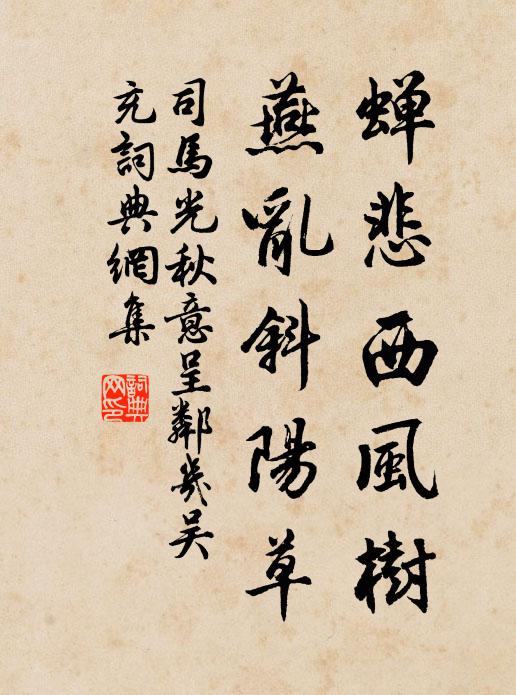 蝉悲西風樹
燕亂斜陽草
司馬光秋意呈鄰幾吴
充詞典網集
詞典
网印